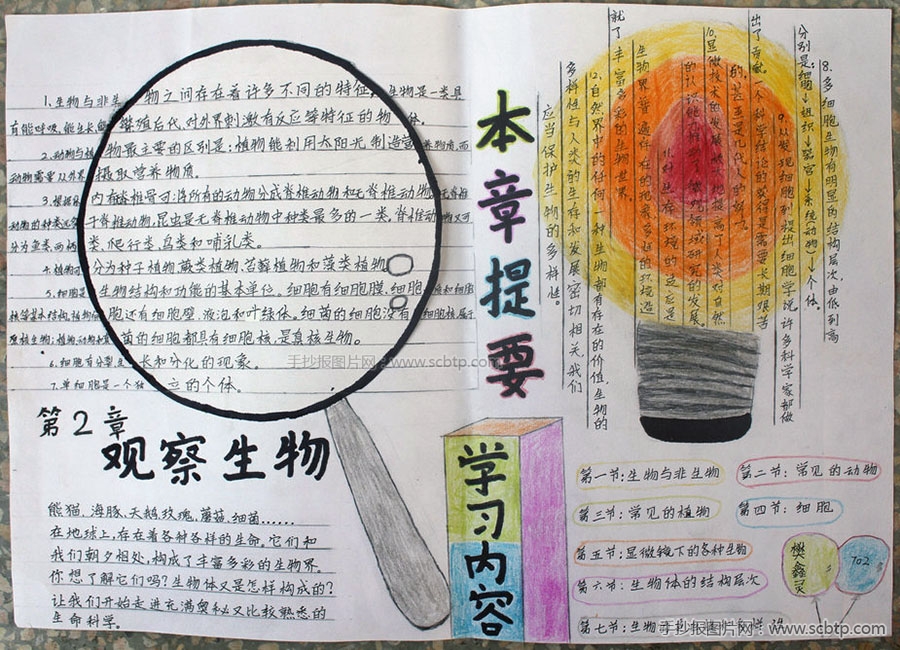 1、生物与非生物之间存在着许多不同的特征,生物是一类具
有能呼吸、能生长、能繁殖后代、对外界刺激有反应等特征的物体。
2、动物与植物最主要的区别是:植物能利用太阳光制造营养物质,而
动物需要从外界摄取营养物质。
3、根据体内有无脊椎骨可将所有的动物分成脊椎动物和无脊椎动物,无脊椎
动物的种类远多于脊椎动物,昆虫是无脊椎动物中种类最多的一类。脊椎动物又可
分为鱼类、两栖类、爬行类、鸟类和哺乳类。
4、植物可分为种子植物、蕨类植物、苔藓植物和藻类植物
5、细胞是生物结构和功能的基本单位。细胞有细胞膜、细胞质和细胞
核等基本结构,植物细胞还有细胞壁、液泡和叶绿体。细菌的细胞没有细胞核,属于
原核生物;植物、动物和真菌的细胞都具有细胞核,是真核生物。
6、细胞有分裂、生长和分化的现象。
7、单细胞是一个独立的个体。
手抄报图片网:www.scbtp.com
第2章
观察生物
熊猫、海豚、天鹅、玫瑰、蘑菇、细菌……
在地球上,存在着各种各样的生命。它们和
我们朝夕相处,构成了丰富多彩的生物界。
你想了解它们吗?生物体又是怎样构成的?
让我们开始走进充满奥秘又比较熟悉的
生命科学。
本章提要
8、多细胞生物有明显的结构层次,由低到高
分别是:细胞→组织→器官→系统(动物)→个体。
9、从发现细胞到提出细胞学说,许多科学家都做
出了贡献。一个科学结论的获得是需要长期艰苦
的,甚至是几代人的努力。
10、显微技术的发展极大地提高了人类对自然
的认识能力,
生物界普遍存在的现象,多样的环境造
就了丰富多彩的生物世界。
12、自然界中的任何一种生物都有存在的价值,生物的
多样性与人类的生存和发展密切相关,我们
应当保护生物的多样性。
学习内容
第一节:生物与非生物
第二节:常见的动物
第三节:常见的植物
第四节:细胞
第五节:显微镜下的各种生物
第六节:生物体的结构层次
第七节:生物
樊鑫灵
702
手抄报图片网:www.scbtp.com